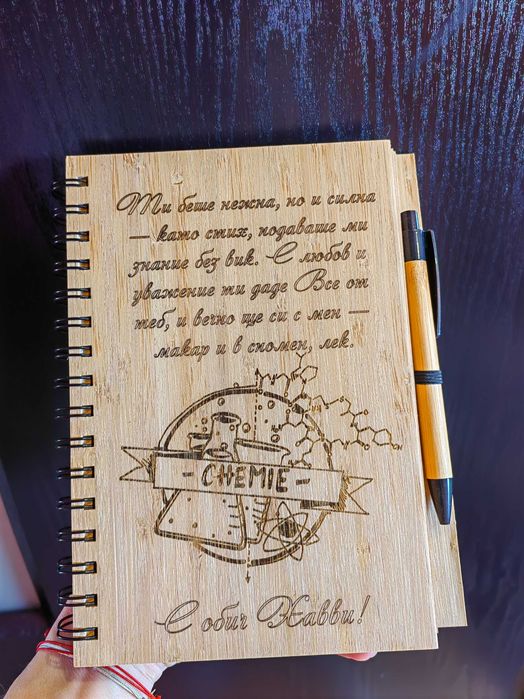 Ти беше нежна, но и силна
— като стих, подаваше ми
знание без вик. С любов и
уважение ти даде Все от
теб, и вечно ще си с мен —
макар и в спомен, лек.
- CHEMIE -
С обич Хавви!